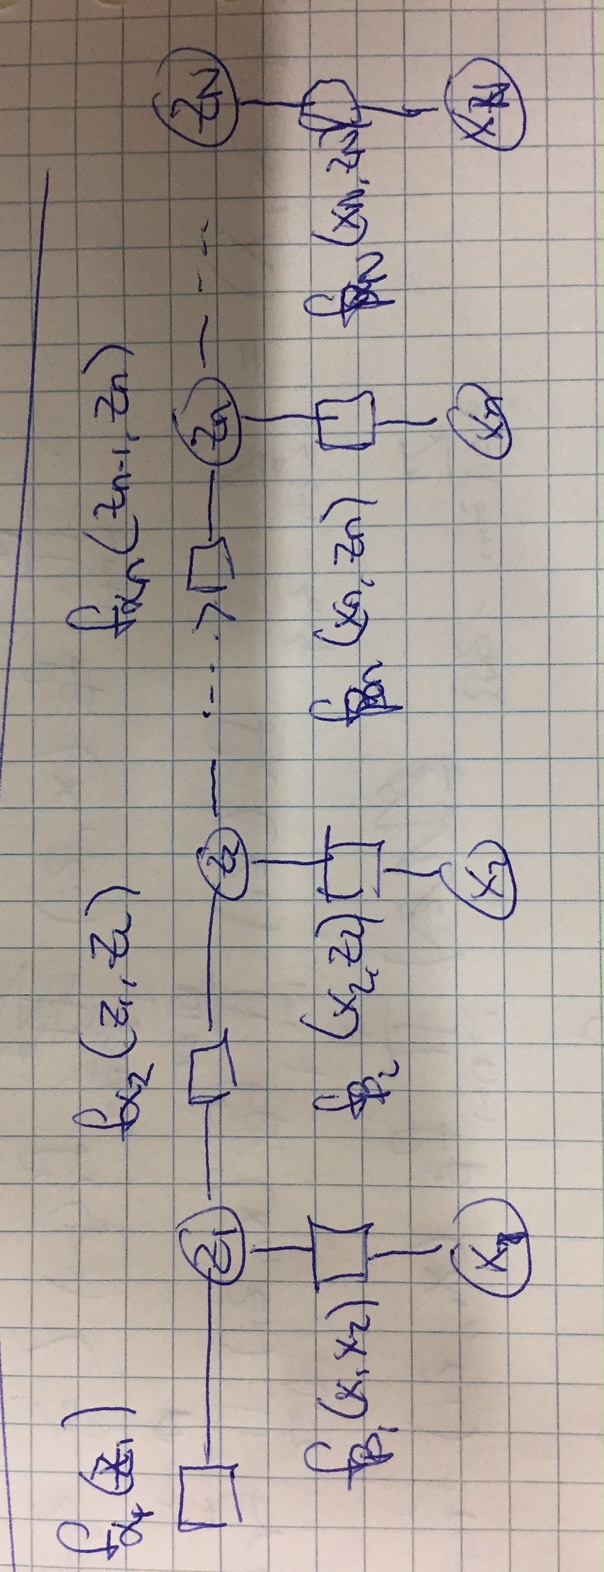 fα1(z1) fα2(z1, z2) fαn(zn-1, zn)
z1 z2 ... zn ... zN
fβ1(x1 x2) fβ2(x2, z2) fβn(xn, zn) fβN(xN, zN)
x1 x2 xn xN